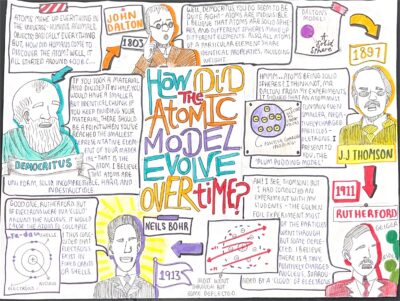 ATOMS MAKE UP EVERYTHING IN
THE UNIVERSE - HUMANS, ANIMALS,
OBJECTS; BASICALLY EVERYTHING.
BUT, HOW DID HUMANS COME TO
DISCOVER THE ATOM? WELL, IT
ALL STARTED AROUND 400 B.C...
JOHN
DALTON
1803
WELL, DEMOCRITUS, YOU TO SEEM TO BE
QUITE RIGHT - ATOMS ARE INDIVISIBLE.
I BELIEVE THAT ATOMS ARE SOLID SPHE
RES AND DIFFERENT SPHERES MAKE UP
DIFFERENT ELEMENTS. ALSO, ALL ATOMS
OF A PARTICULAR ELEMENT SHARE
IDENTICAL PROPERTIES, INCLUDING
WEIGHT.
DALTON'S
MODEL:
A
Solid
Sphere
1897
IF YOU TOOK A MATERIAL
AND DIVIDED IT IN HALF, YOU
WOULD HAVE A SMALLER
BUT IDENTICAL CHUNK. IF
YOU KEEP DIVIDING YOUR
MATERIAL, THERE SHOULD
BE A POINT WHEN YOU'VE
REACHED THE SMALLEST
REPRESENTATIVE ELEM
ENT OF YOUR MATER
IAL - THAT IS THE
ATOM. I BELIEVE
THAT ATOMS ARE
UNIFORM, SOLID, INCOMPRESSIBLE, HARD, AND
INDESTRUCTIBLE
DEMOCRITUS
HOW DID
THE
ATOMIC
MODEL
EVOLVE
OVER time?
HMMM... ATOMS BEING SOLID
SPHERES? I THINK NOT, MR.
DALTON. FROM MY EXPERIMENTS
"PLUM PUDDING MODEL"
J.J THOMSON
1911
RUTHERFORD
GEIGER
GOOD ONE, RUTHERFORD. BUT
IF ELECTRONS WERE IN A CLOUD
AROUND THE NUCLEUS, IT WOULD
CAUSE THE ATOM TO COLLAPSE.
I THUS DISC
OVER THAT
ELECTRONS
EXIST IN
ELECTRONS
NUCLEUS
NEILS BOHR
1913
MOST WENT
THROUGH BUT
SOME DEFLECTED
AHH I SEE, THOMSON! BUT
I HAD CONDUCTED AN
EXPERIMENT WITH MY
STUDENTS - THE GOLD
FOIL EXPERIMENT. MOST
OF THE
PARTICLES
WENT THROUGH
BUT SOME DEFLEC
TED. I BELIEVE
THERE IS A TINY,
POSITIVELY CHARGED
BY A 'CLOUD' OF ELECTRONS